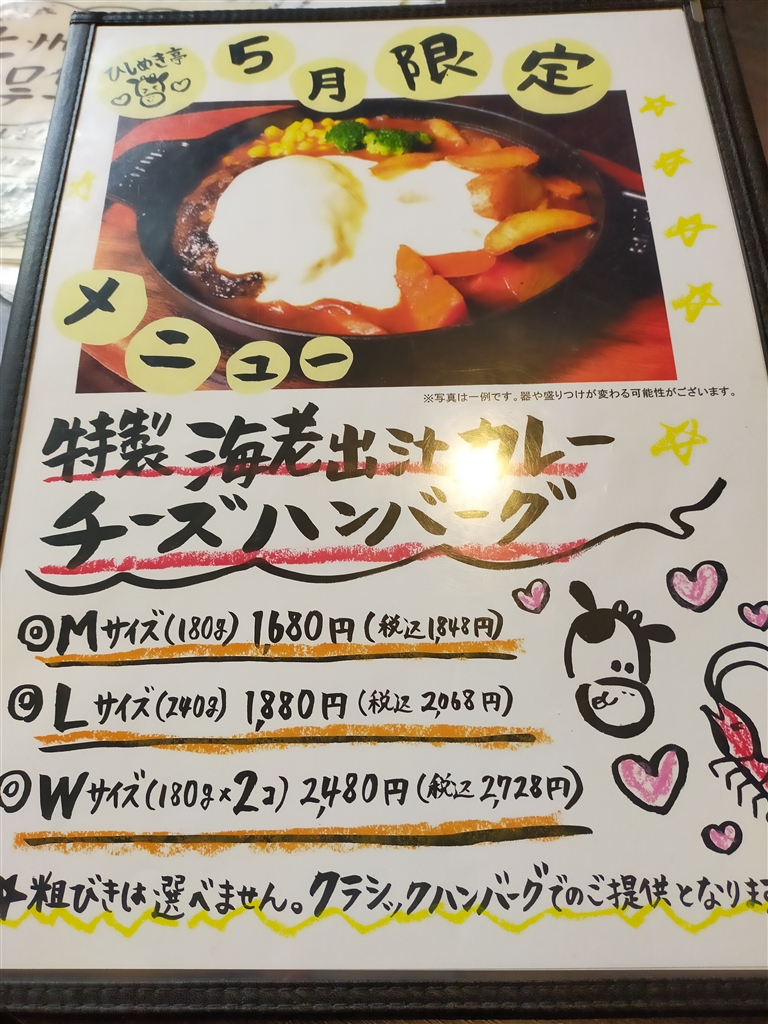 ひしめき亭
5月限定
メニュー
※写真は一例です。器や盛りつけが変わる可能性がございます。
特製 海老出汁カレー
チーズハンバーグ
◎Mサイズ(180g) 1,680円(税込1,848円)
◎Lサイズ(240g) 1,880円(税込 2,068円)
◎Wサイズ(180g×2コ) 2,480円(税込2,728円)
☆粗びきは選べません。クラシックハンバーグでのご提供となります